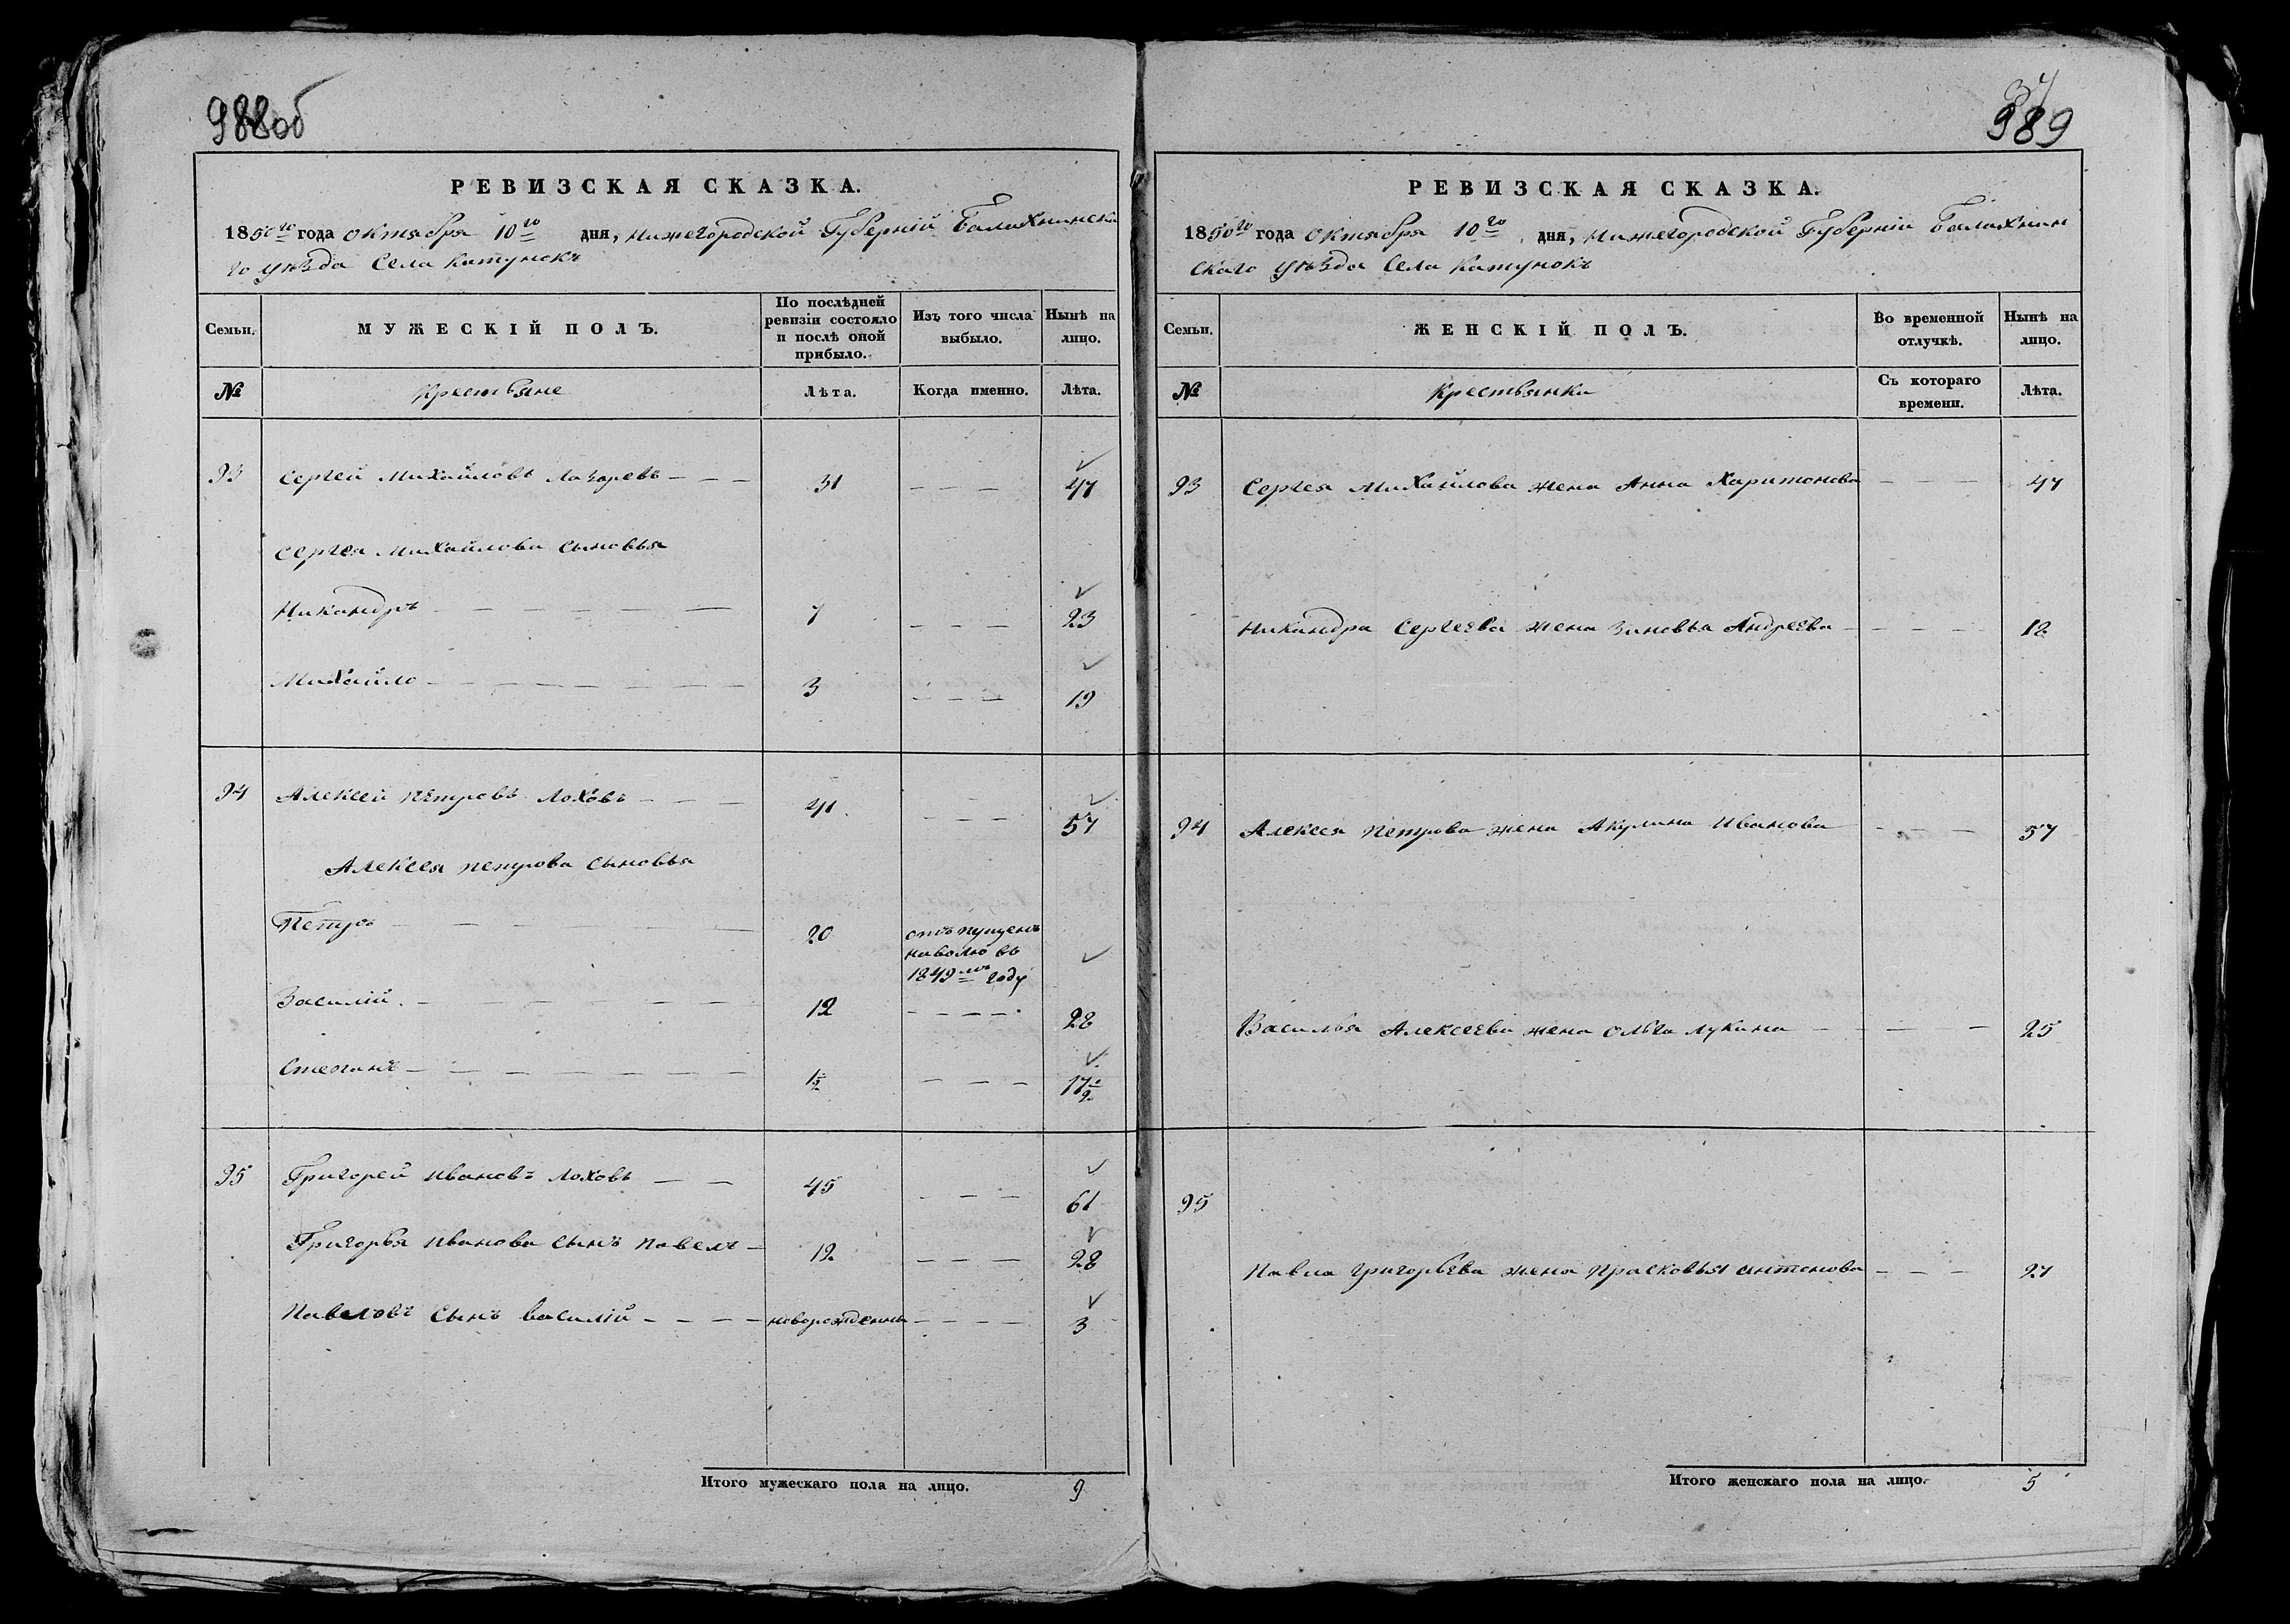 988об
РЕВИЗСКАЯ СКАЗКА.
1850го года октября 10го дня, Нижегородской Губерніи Балахнинска
го уѣзда Села Катунокъ
Семьи. МУЖЕСКІЙ ПОЛЪ. По послѣдней ревизіи состояло и послѣ оной прибыло. Изъ того числа выбыло. Нынѣ на лицо.
№ Крестьяне Лѣта. Когда именно. Лѣта.
93 Сергей Михайловъ Лазаревъ — — — 31 — — — 47
Сергея Михайлова сыновья
Никандръ — — — — — — 7 — — — 23
Михайло — — — — — — — — 3 — — — 19
94 Алексей Петровъ Лоховъ — — — 41 — — — 57
Алексея Петрова сыновья
Петръ — — — 20 отъ пущенъ
наволю въ
1849мъ году
Василій — — — — — — — 12 — — — — 28
Степанъ — — — — — — — 1½ — — — 17½
95 Григорей Ивановъ Лоховъ — — 45 — — — 61
Григорья Иванова сынъ Павелъ — 12 — — — 28
Павеловъ сынъ василій — — — — новорожденны — — — — 3
Итого мужескаго пола на лицо. 9
37
989
РЕВИЗСКАЯ СКАЗКА.
1850го года Октября 10го дня, Нижегородской Губерніи Балахнин
скаго уѣзда Села Катунокъ
Семьи. ЖЕНСКІЙ ПОЛЪ. Во временной отлучкѣ. Нынѣ на лицо.
№ Крестьянки Съ котораго времени. Лѣта.
93 Сергея Михайлова жена Анна Харитонова — — — 47
Никандра Сергеева жена Зиновья Андреева — — — — 18
94 Алексея Петрова жена Акулина Иванова — — — 57
Василья Алексеева жена Ольга Лукина — — — 25
95
Павла Григорьева жена Прасковья Антонова — — — 27
Итого женскаго пола на лицо. 5